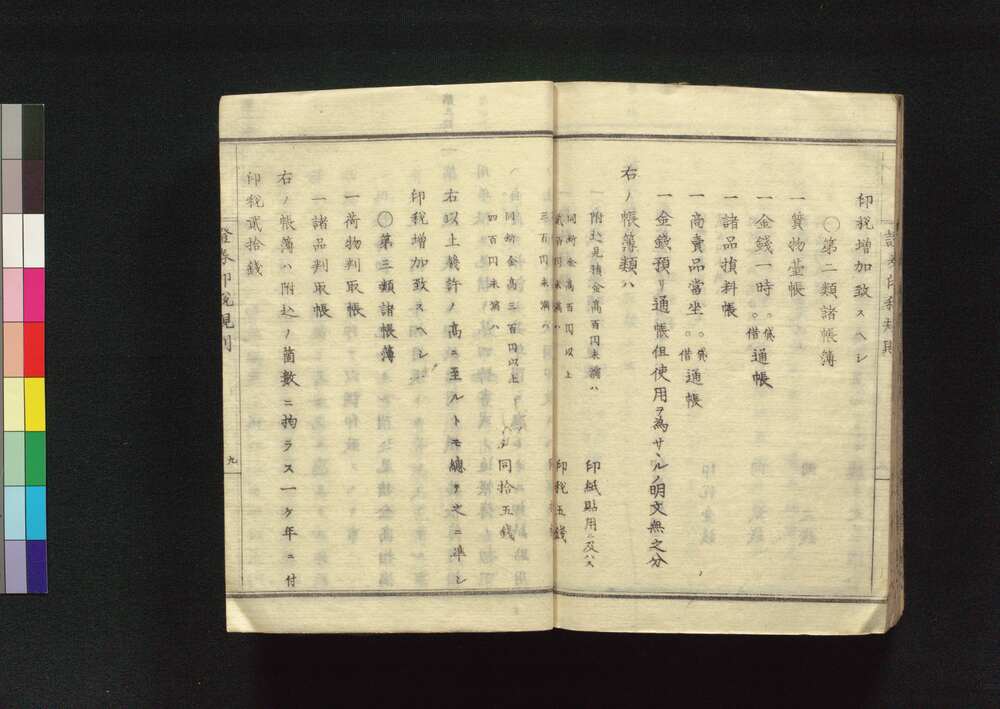 印税増加致スヘシ
〇第二類諸帳簿
一質物臺帳
一金錢一時。貸。借通帳
一諸品損料帳
一商賣品當坐。貸。借通帳
一金錢預リ通帳但使用ヲ為サヽルノ明文無之分
右ノ帳簿類ハ
附込見積金高百円未満ハ 印紙貼用ニ及ハス
同断金高百円以上
貳百円未満ハ 印税五錢
三百円未満ハ
同断金高三百円以上
四百円未満ハ 同拾五錢
右以上幾許ノ高ニ至ルトモ總テ之ニ準シ
印税増加致スヘシ
〇第三類諸帳簿
一荷物判取帳
一諸品判取帳
右ノ帳簿ハ附込ノ箇數ニ拘ラス一ケ年ニ付
印税貳拾錢
證券印税規則
九